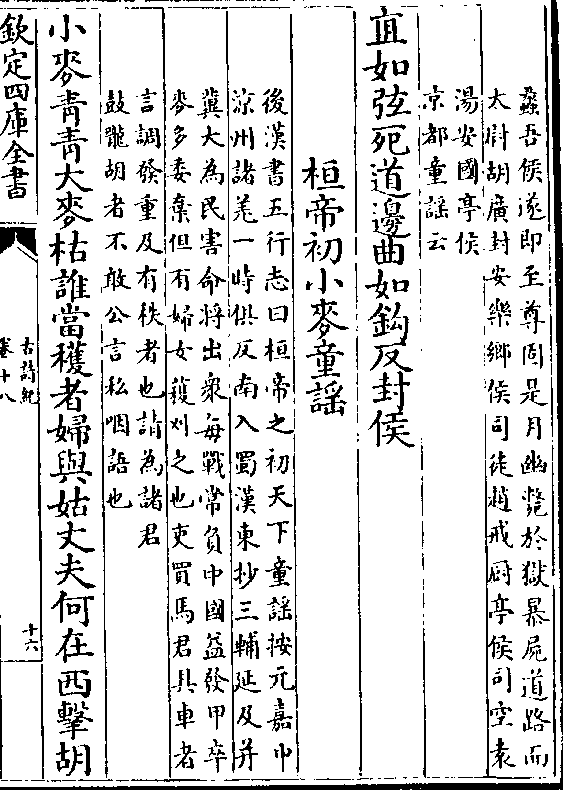 蠡吾侯遂即至尊固是月幽斃於獄暴屍道路而
太尉胡廣封安樂鄉侯司徒趙戒厨亭侯司空袁
湯安國亭侯
京都童謡云
直如弦死道邊曲如鈎反封侯
桓帝初小麥童謡
後漢書五行志曰桓帝之初天下童謡按元嘉中
凉州諸羌一時俱反南入蜀漢東抄三輔延及并
冀大為民害命將出衆每戰常負中國益發甲卒
麥多委棄但有婦女穫刈之也吏買馬君具車者
言調發重及有秩者也請為諸君
鼓嚨胡者不敢公言私咽語也
小麥青青大麥枯誰當穫者婦與姑丈夫何在西擊胡
欽定四庫全書
古詩紀
卷十八
十六